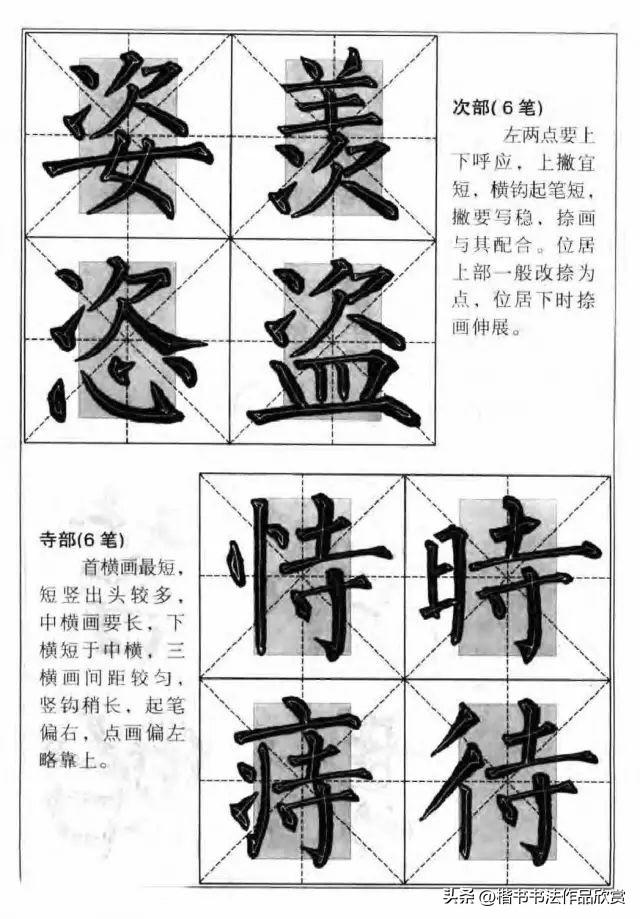 姿羡
恣盗
次部(6笔)
左两点要上
下呼应，上撇宜
短，横钩起笔短，
撇要写稳，捺画
与其配合。位居
上部一般改捺为
点，位居下时捺
画伸展。
寺部(6笔)
首横画最短，
短竖出头较多，
中横画要长，下
横短于中横，三
横画间距较匀，
竖钩稍长，起笔
偏右，点画偏左
略靠上。
恃時
痔待
头条 @楷书书法作品欣赏